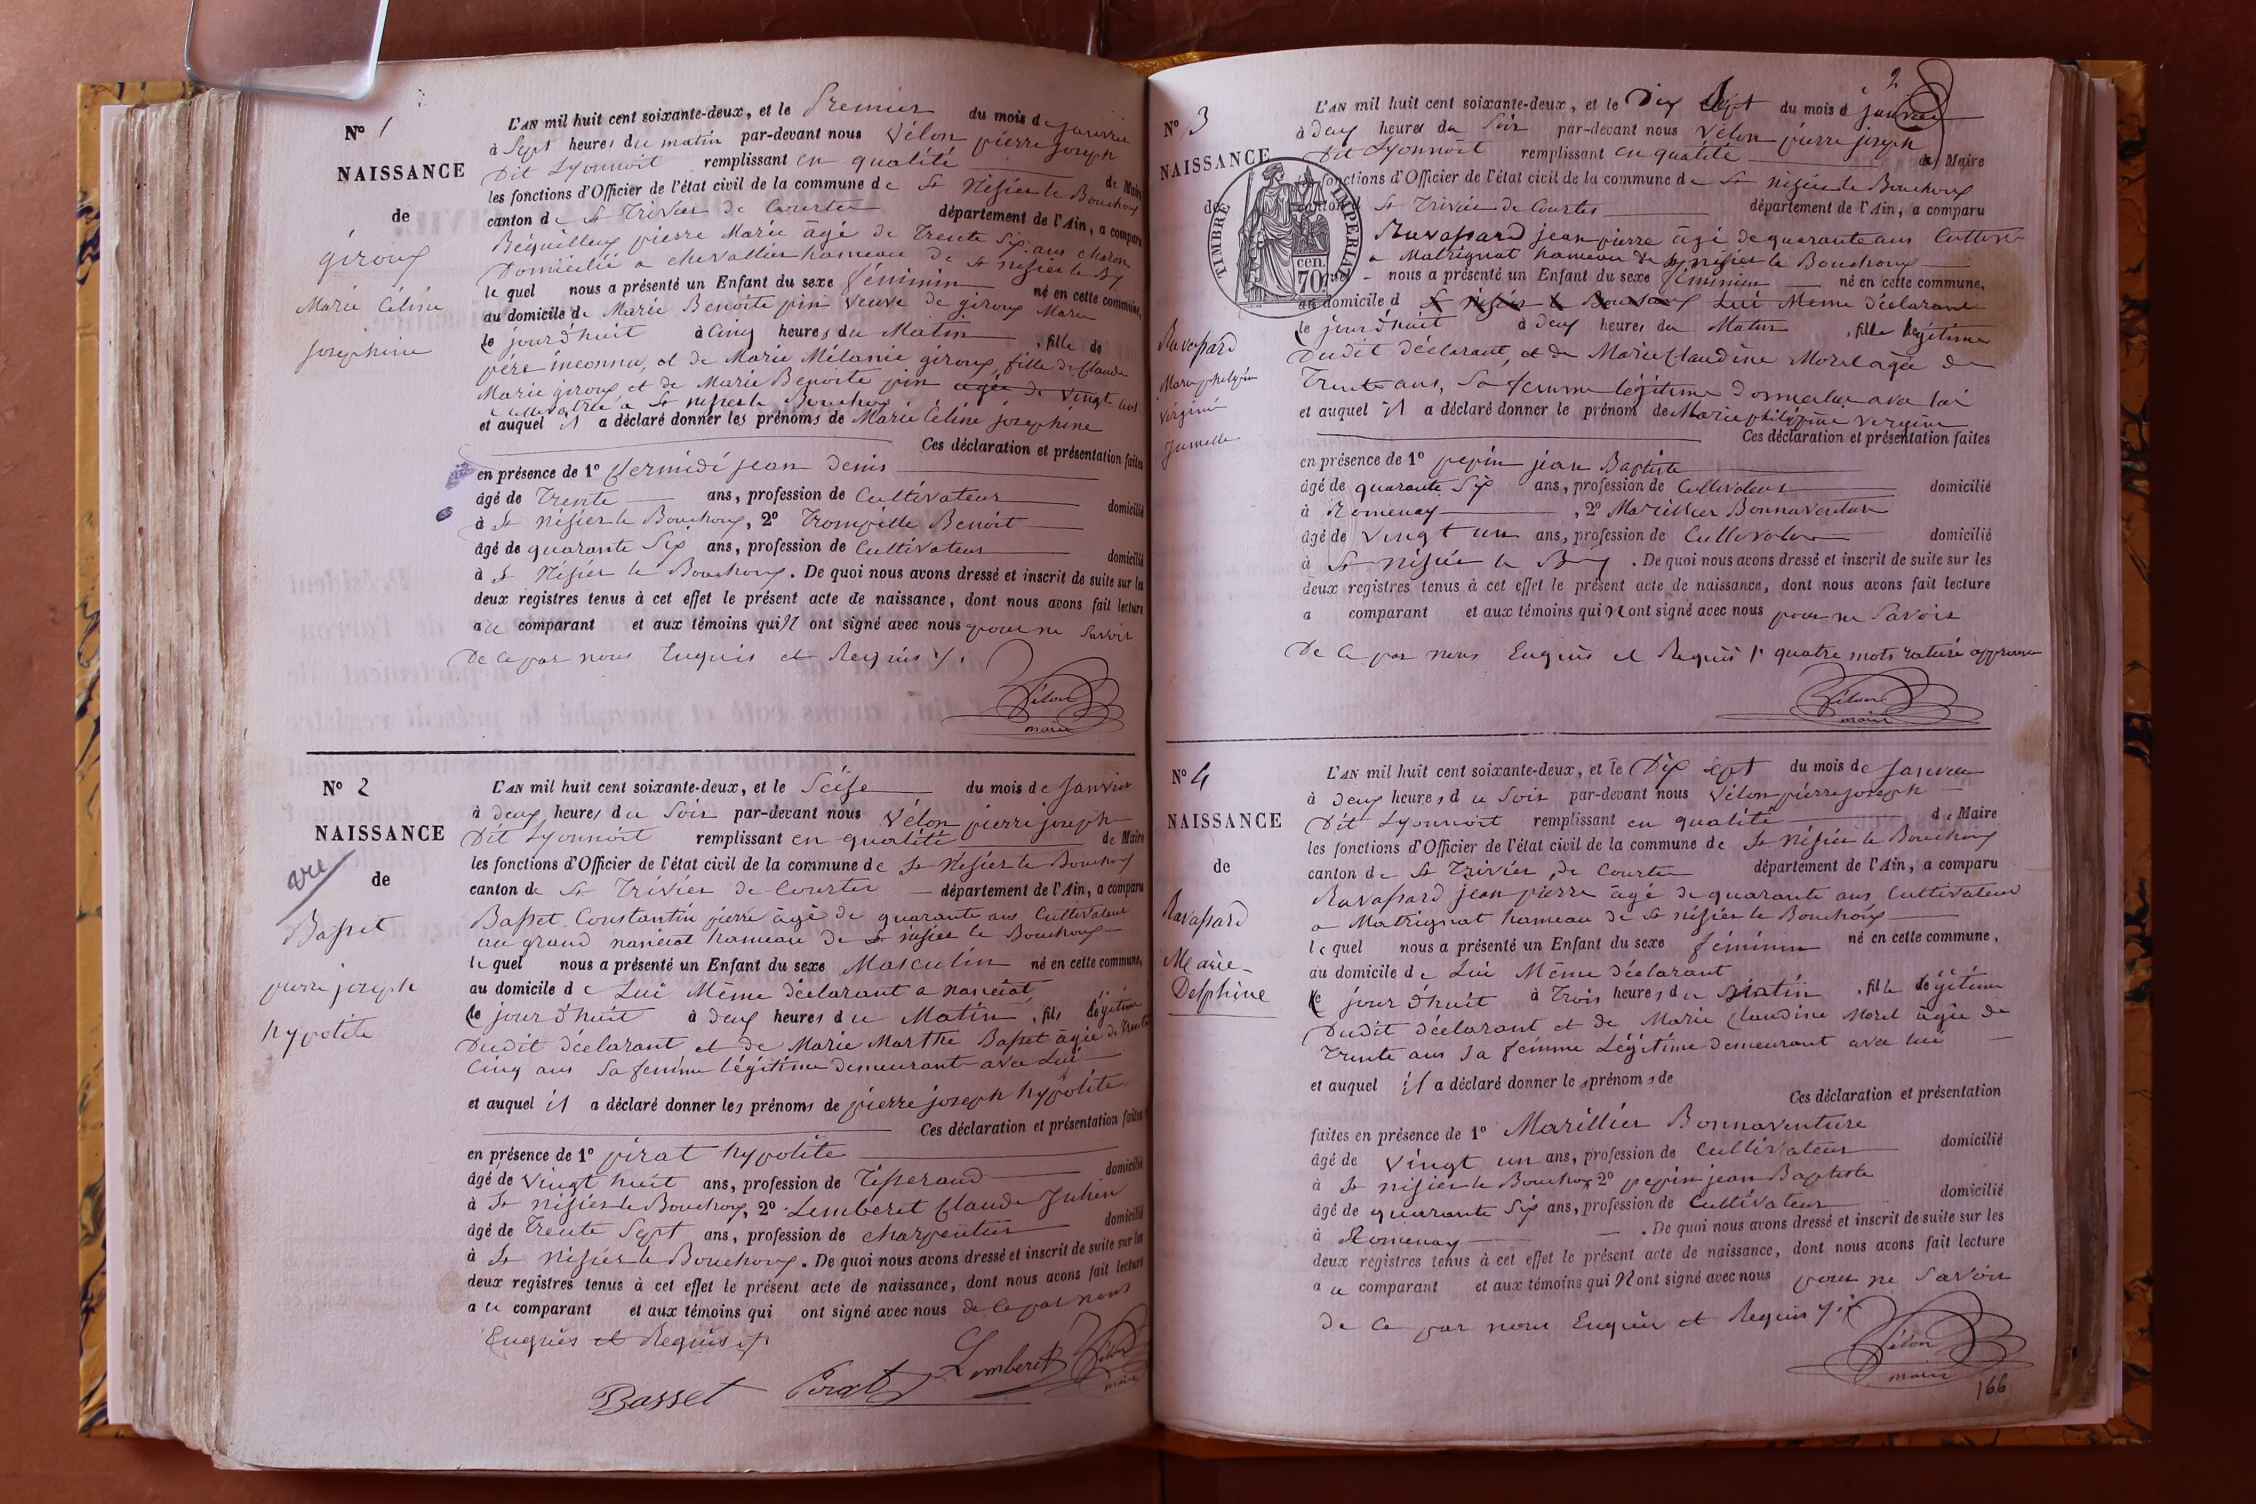 N° 1
NAISSANCE
de
giroux
Marie Céline
josephine
L'AN mil huit cent soixante-deux, et le Premier du mois de janvier
à Sept heures du matin par-devant nous Vélon pierre joseph
Dit Lyonnoit remplissant en qualité de Maire
les fonctions d'Officier de l'état civil de la commune de St Nisier le Bouchoux
canton de St Trivier de Courtes département de l'Ain, a comparu
pierre Marie âgé de Trente Six ans charon
Domicilié a chevallier hameau de St nisier le Bx
le quel nous a présenté un Enfant du sexe féminin né en cette commune,
au domicile de Marie Benoite pin veuve de giroux Marie
le jour d'huit à Cinq heures du Matin , fille de
père inconnu, et de Marie Mélanie giroux, fille de Claude
Marie giroux et de Marie Benoite pin agée de vingt ans
cultivatrice a St nisier le Bouchoux
et auquel il a déclaré donner les prénoms de Marie Céline josephine
Ces déclaration et présentation faites
en présence de 1° jean Denis
âgé de Trente ans, profession de Cultivateur domicilié
à St Nisier le Bouchoux, 2° Trompille Benoit
âgé de quarante Six ans, profession de Cultivateur domicilié
à St Nisier le Bouchoux. De quoi nous avons dressé et inscrit de suite sur les
deux registres tenus à cet effet le présent acte de naissance, dont nous avons fait lecture
au comparant et aux témoins qui n ont signé avec nous pour ne Savoir
De ce par nous Enquis et Requis
Vélon
maire
N° 2
NAISSANCE
vu
de
Basset
pierre joseph
hypolite
L'AN mil huit cent soixante-deux, et le Seize du mois de Janvier
à Deux heures du Soir par-devant nous Vélon pierre joseph
Dit Lyonnoit remplissant en qualité de Maire
les fonctions d'Officier de l'état civil de la commune de St Nisier le Bouchoux
canton de St Trivier de Courtes département de l'Ain, a comparu
Basset Constantin pierre âgé de quarante ans Cultivateur
au grand nanciat hameau de St nisier le Bouchoux
le quel nous a présenté un Enfant du sexe Masculin né en cette commune,
au domicile de Lui Même déclarant a nanciat
le jour d'huit à deux heures du Matin , fils légitime
Dudit déclarant et de Marie Marthe Basset âgée de Trente
Cinq ans Sa femme légitime demeurant avec Lui
et auquel il a déclaré donner les prénoms de pierre joseph hypolite
Ces déclaration et présentation faites
en présence de 1° pirat hypolite
âgé de Vingt huit ans, profession de Tisserand domicilié
à St Nisier le Bouchoux, 2° Lemberet Claude Julien
âgé de Trente Sept ans, profession de charpentier domicilié
à St Nisier le Bouchoux. De quoi nous avons dressé et inscrit de suite sur les
deux registres tenus à cet effet le présent acte de naissance, dont nous avons fait lecture
au comparant et aux témoins qui ont signé avec nous de ce par nous
Enquis et Requis
Basset Pirat Lemberet Vélon
maire
2
N° 3
NAISSANCE
de
TIMBRE IMPERIAL
70 cen.
Ravassard
Marie philippine
Virginie
Jumelle
L'AN mil huit cent soixante-deux, et le Dix Sept du mois de janvier
à Deux heures du Soir par-devant nous Vélon pierre joseph
Dit Lyonnoit remplissant en qualité de Maire
les fonctions d'Officier de l'état civil de la commune de St Nisier le Bouchoux
canton de St Trivier de Courtes département de l'Ain, a comparu
Ravassard jean pierre âgé de quarante ans Cultivat
a Matrignat hameau de St nisier le Bouchoux
quel nous a présenté un Enfant du sexe féminin né en cette commune,
au domicile d St Nisier le Bouchoux Lui Meme déclarant
le jour d'huit à deux heures du Matin , fille légitime
Dudit déclarant, et de Marie Claudine Morel agée de
Trente ans, Sa femme légitime Domiciliée avec lui
et auquel il a déclaré donner le prénom de Marie philippine Virginie
Ces déclaration et présentation faites
en présence de 1° pepin jean Baptiste
âgé de quarante Six ans, profession de Cultivateur domicilié
à Romenay , 2° Marillier Bonnaventure
âgé de vingt un ans, profession de Cultivateur domicilié
à St Nisier le Bx . De quoi nous avons dressé et inscrit de suite sur les
deux registres tenus à cet effet le présent acte de naissance, dont nous avons fait lecture
a comparant et aux témoins qui n ont signé avec nous pour ne Savoir
De ce par nous Enquis et Requis quatre mots raturé approuvé
Vélon
maire
N° 4
NAISSANCE
de
Ravassard
Marie
Delphine
L'AN mil huit cent soixante-deux, et le Dix sept du mois de Janvier
à Deux heures du Soir par-devant nous Vélon pierre joseph
Dit Lyonnoit remplissant en qualité de Maire
les fonctions d'Officier de l'état civil de la commune de St Nisier le Bouchoux
canton de St Trivier de Courtes département de l'Ain, a comparu
Ravassard jean pierre âgé de quarante ans Cultivateur
a Matrignat hameau de St nisier le Bouchoux
le quel nous a présenté un Enfant du sexe féminin né en cette commune,
au domicile de Lui Même déclarant
le jour d'huit à Trois heures du Matin , fille légitime
Dudit déclarant et de Marie Claudine Morel âgée de
Trente ans Sa femme Légitime demeurant avec lui
et auquel il a déclaré donner les prénoms de
Ces déclaration et présentation
faites en présence de 1° Marillier Bonnaventure
âgé de Vingt un ans, profession de Cultivateur domicilié
à St nisier le Bouchoux 2° pepin jean Baptiste
âgé de quarante Six ans, profession de Cultivateur domicilié
à Romenay . De quoi nous avons dressé et inscrit de suite sur les
deux registres tenus à cet effet le présent acte de naissance, dont nous avons fait lecture
au comparant et aux témoins qui n ont signé avec nous pour ne Savoir
de ce par nous Enquis et Requis
Vélon
maire
166